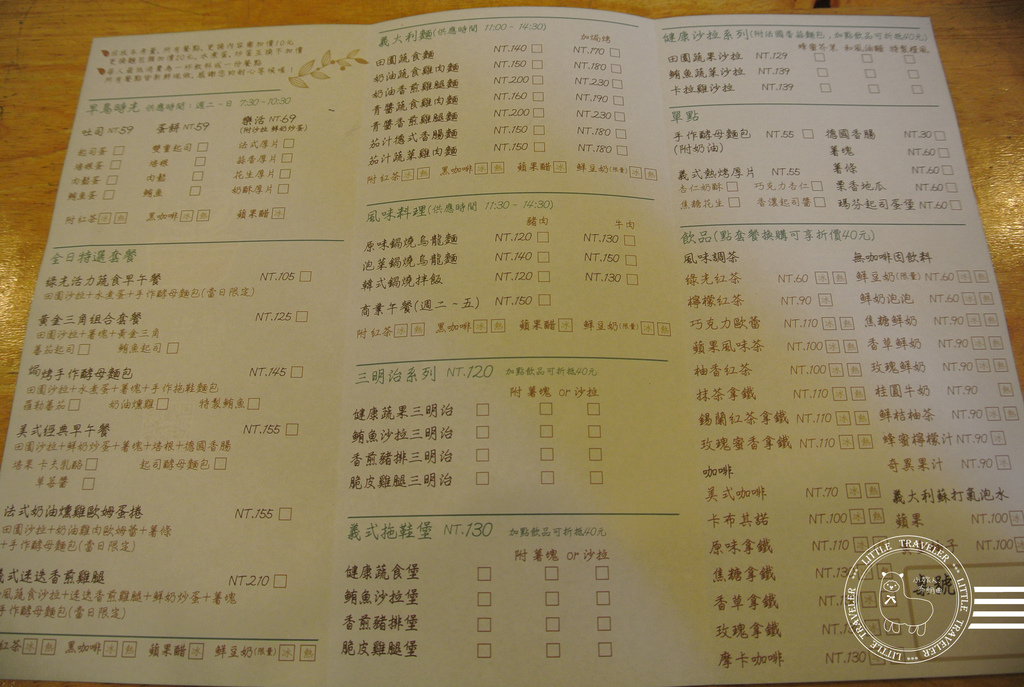 完成本身量,所有餐點,更換內容需加價10元
更換麵包需加價20元,水煮蛋、炒蛋互換不加價
每人最低消費為一份飲料或一份餐點
所有餐點皆新鮮現做,感謝您的耐心等候喔!
早鳥時光 供應時間:週二~日 7:30-10:30
吐司 NT.59 蛋餅 NT.59 樂活 NT.69
(附沙拉 鮮奶炒蛋)
起司蛋 雙重起司 法式厚片
培根蛋 培根 蒜香厚片
肉鬆蛋 肉鬆 花生厚片
鮪魚蛋 鮪魚 奶酥厚片
附紅茶 冰 熱 黑咖啡 冰 熱 蘋果醋 冰
全日特選套餐
綠光活力蔬食早午餐 NT.105
田園沙拉+水煮蛋+手作酵母麵包(當日限定)
黃金三角組合套餐 NT.125
田園沙拉+薯塊+黃金三角
蕃茄起司 鮪魚起司
焗烤手作酵母麵包 NT.145
田園沙拉+水煮蛋+薯塊+手作拖鞋麵包
羅勒蕃茄 奶油燻雞 特製鮪魚
美式經典早午餐 NT.155
田園沙拉+鮮奶炒蛋+薯塊+培根+德國香腸
培果 卡夫乳酪 起司酵母麵包
草莓醬
法式奶油燻雞歐姆蛋捲 NT.155
田園沙拉+奶油雞肉歐姆蕾+薯條
+手作酵母麵包(當日限定)
義式迷迭香煎雞腿 NT.210
風蔬食沙拉+迷迭香煎雞腿+鮮奶炒蛋+薯塊
手作酵母麵包(當日限定)
紅茶 冰 熱 黑咖啡 冰 熱 蘋果醋 冰 鮮豆奶(限量) 冰 熱
義大利麵(供應時間 11:00~14:30)
加焗烤
田園蔬食麵 NT.140 NT.170
奶油蔬食雞肉麵 NT.150 NT.180
奶油香煎雞腿麵 NT.200 NT.230
青醬蔬食雞肉麵 NT.160 NT.190
青醬香煎雞腿麵 NT.200 NT.230
茄汁德式香腸麵 NT.150 NT.180
茄汁蔬菜雞肉麵 NT.150 NT.180
附紅茶 冰 熱 黑咖啡 冰 熱 蘋果醋 冰 鮮豆奶(限量) 冰 熱
風味料理(供應時間 11:30 ~ 14:30)
豬肉 牛肉
原味鍋燒烏龍麵 NT.120 NT.130
泡菜鍋燒烏龍麵 NT.140 NT.150
韓式鍋燒拌飯 NT.120 NT.130
商業午餐(週二~五) NT.150
附紅茶 冰 熱 黑咖啡 冰 熱 蘋果醋 冰 鮮豆奶(限量) 冰 熱
三明治系列 NT.120 加點飲品可折抵40元
附 薯塊 or 沙拉
健康蔬果三明治
鮪魚沙拉三明治
香煎豬排三明治
脆皮雞腿三明治
義式拖鞋堡 NT.130 加點飲品可折抵40元
附 薯塊 or 沙拉
健康蔬食堡
鮪魚沙拉堡
香煎豬排堡
脆皮雞腿堡
健康沙拉系列(附法國香蒜麵包,加點飲品可折抵40元)
蜂蜜芥茉 和風油醋 特製優格
田園蔬果沙拉 NT.129
鮪魚蔬菜沙拉 NT.139
卡拉雞沙拉 NT.139
單點
手作酵母麵包 NT.55 德國香腸 NT.30
(附奶油) 薯塊 NT.60
義式熱烤厚片 NT.55 薯條 NT.60
杏仁奶酥 巧克力杏仁 栗香地瓜 NT.60
焦糖花生 香濃起司醬 瑪芬起司蛋堡 NT.60
飲品(點套餐換購可享折價40元)
風味調茶 無咖啡因飲料
綠光紅茶 NT.60 冰 熱 鮮豆奶(限量) NT.60 冰 熱
檸檬紅茶 NT.90 冰 鮮奶泡泡 NT.60 冰 熱
巧克力歐蕾 NT.110 冰 熱 焦糖鮮奶 NT.90 冰 熱
蘋果風味茶 NT.100 冰 熱 香草鮮奶 NT.90 冰 熱
柚香紅茶 NT.100 冰 熱 玫瑰鮮奶 NT.90 冰 熱
抹茶拿鐵 NT.110 冰 熱 桂圓牛奶 NT.90 熱
錫蘭紅茶拿鐵 NT.110 冰 熱 鮮桔柚茶 NT.90 冰 熱
玫瑰蜜香拿鐵 NT.110 冰 熱 蜂蜜檸檬汁 NT.90 冰
咖啡 奇異果汁 NT.90 冰
美式咖啡 NT.70 冰 熱 義大利蘇打氣泡水
卡布其諾 NT.100 冰 熱 蘋果 NT.100 冰
原味拿鐵 NT.110 冰 熱 子 NT.100 冰
焦糖拿鐵 NT.13
香草拿鐵 NT.13
玫瑰拿鐵 NT.13
摩卡咖啡 NT.130 冰
桌號
LITTLE TRAVELER LITTLE TRAVELER LITTLE TRAVELER